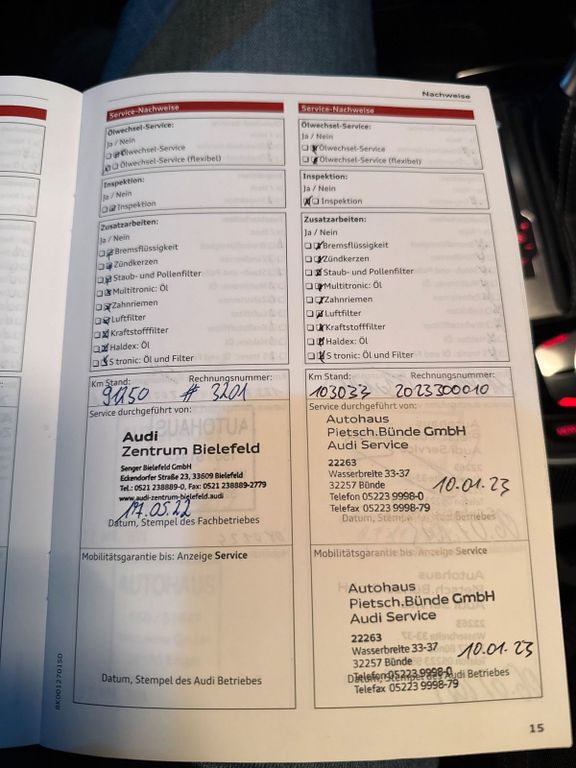 Nachweise
Service-Nachweise
Ölwechsel-Service:
Ja / Nein
Ölwechsel-Service
Ölwechsel-Service (flexibel)
Inspektion:
Ja / Nein
Inspektion
Zusatzarbeiten:
Ja / Nein
Bremsflüssigkeit
Zündkerzen
Staub- und Pollenfilter
Multitronic: Öl
Zahnriemen
Luftfilter
Kraftstofffilter
Haldex: Öl
S tronic: Öl und Filter
Km Stand: Rechnungsnummer:
91250 # 3201
Service durchgeführt von:
Audi
Zentrum Bielefeld
Senger Bielefeld GmbH
Eckendorfer Straße 23, 33609 Bielefeld
Tel.: 0521 238889-0, Fax: 0521 238889-2779
www.audi-zentrum-bielefeld.audi
17.05.22
Datum, Stempel des Fachbetriebes
Mobilitätsgarantie bis: Anzeige Service
Datum, Stempel des Audi Betriebes
Service-Nachweise
Ölwechsel-Service:
Ja / Nein
Ölwechsel-Service
Ölwechsel-Service (flexibel)
Inspektion:
Ja / Nein
Inspektion
Zusatzarbeiten:
Ja / Nein
Bremsflüssigkeit
Zündkerzen
Staub- und Pollenfilter
Multitronic: Öl
Zahnriemen
Luftfilter
Kraftstofffilter
Haldex: Öl
S tronic: Öl und Filter
Km Stand: Rechnungsnummer:
103033 2023300010
Service durchgeführt von:
Autohaus
Pietsch.Bünde GmbH
Audi Service
22263
Wasserbreite 33-37
32257 Bünde 10.01.23
Telefon 05223 9998-0
Telefax 05223 9998-79
Datum, Stempel des Fachbetriebes
Mobilitätsgarantie bis: Anzeige Service
Autohaus
Pietsch.Bünde GmbH
Audi Service
22263
Wasserbreite 33-37
32257 Bünde 10.01.23
Telefon 05223 9998-0
Datum, Stempel des Audi Betriebes
Telefax 05223 9998-79
15